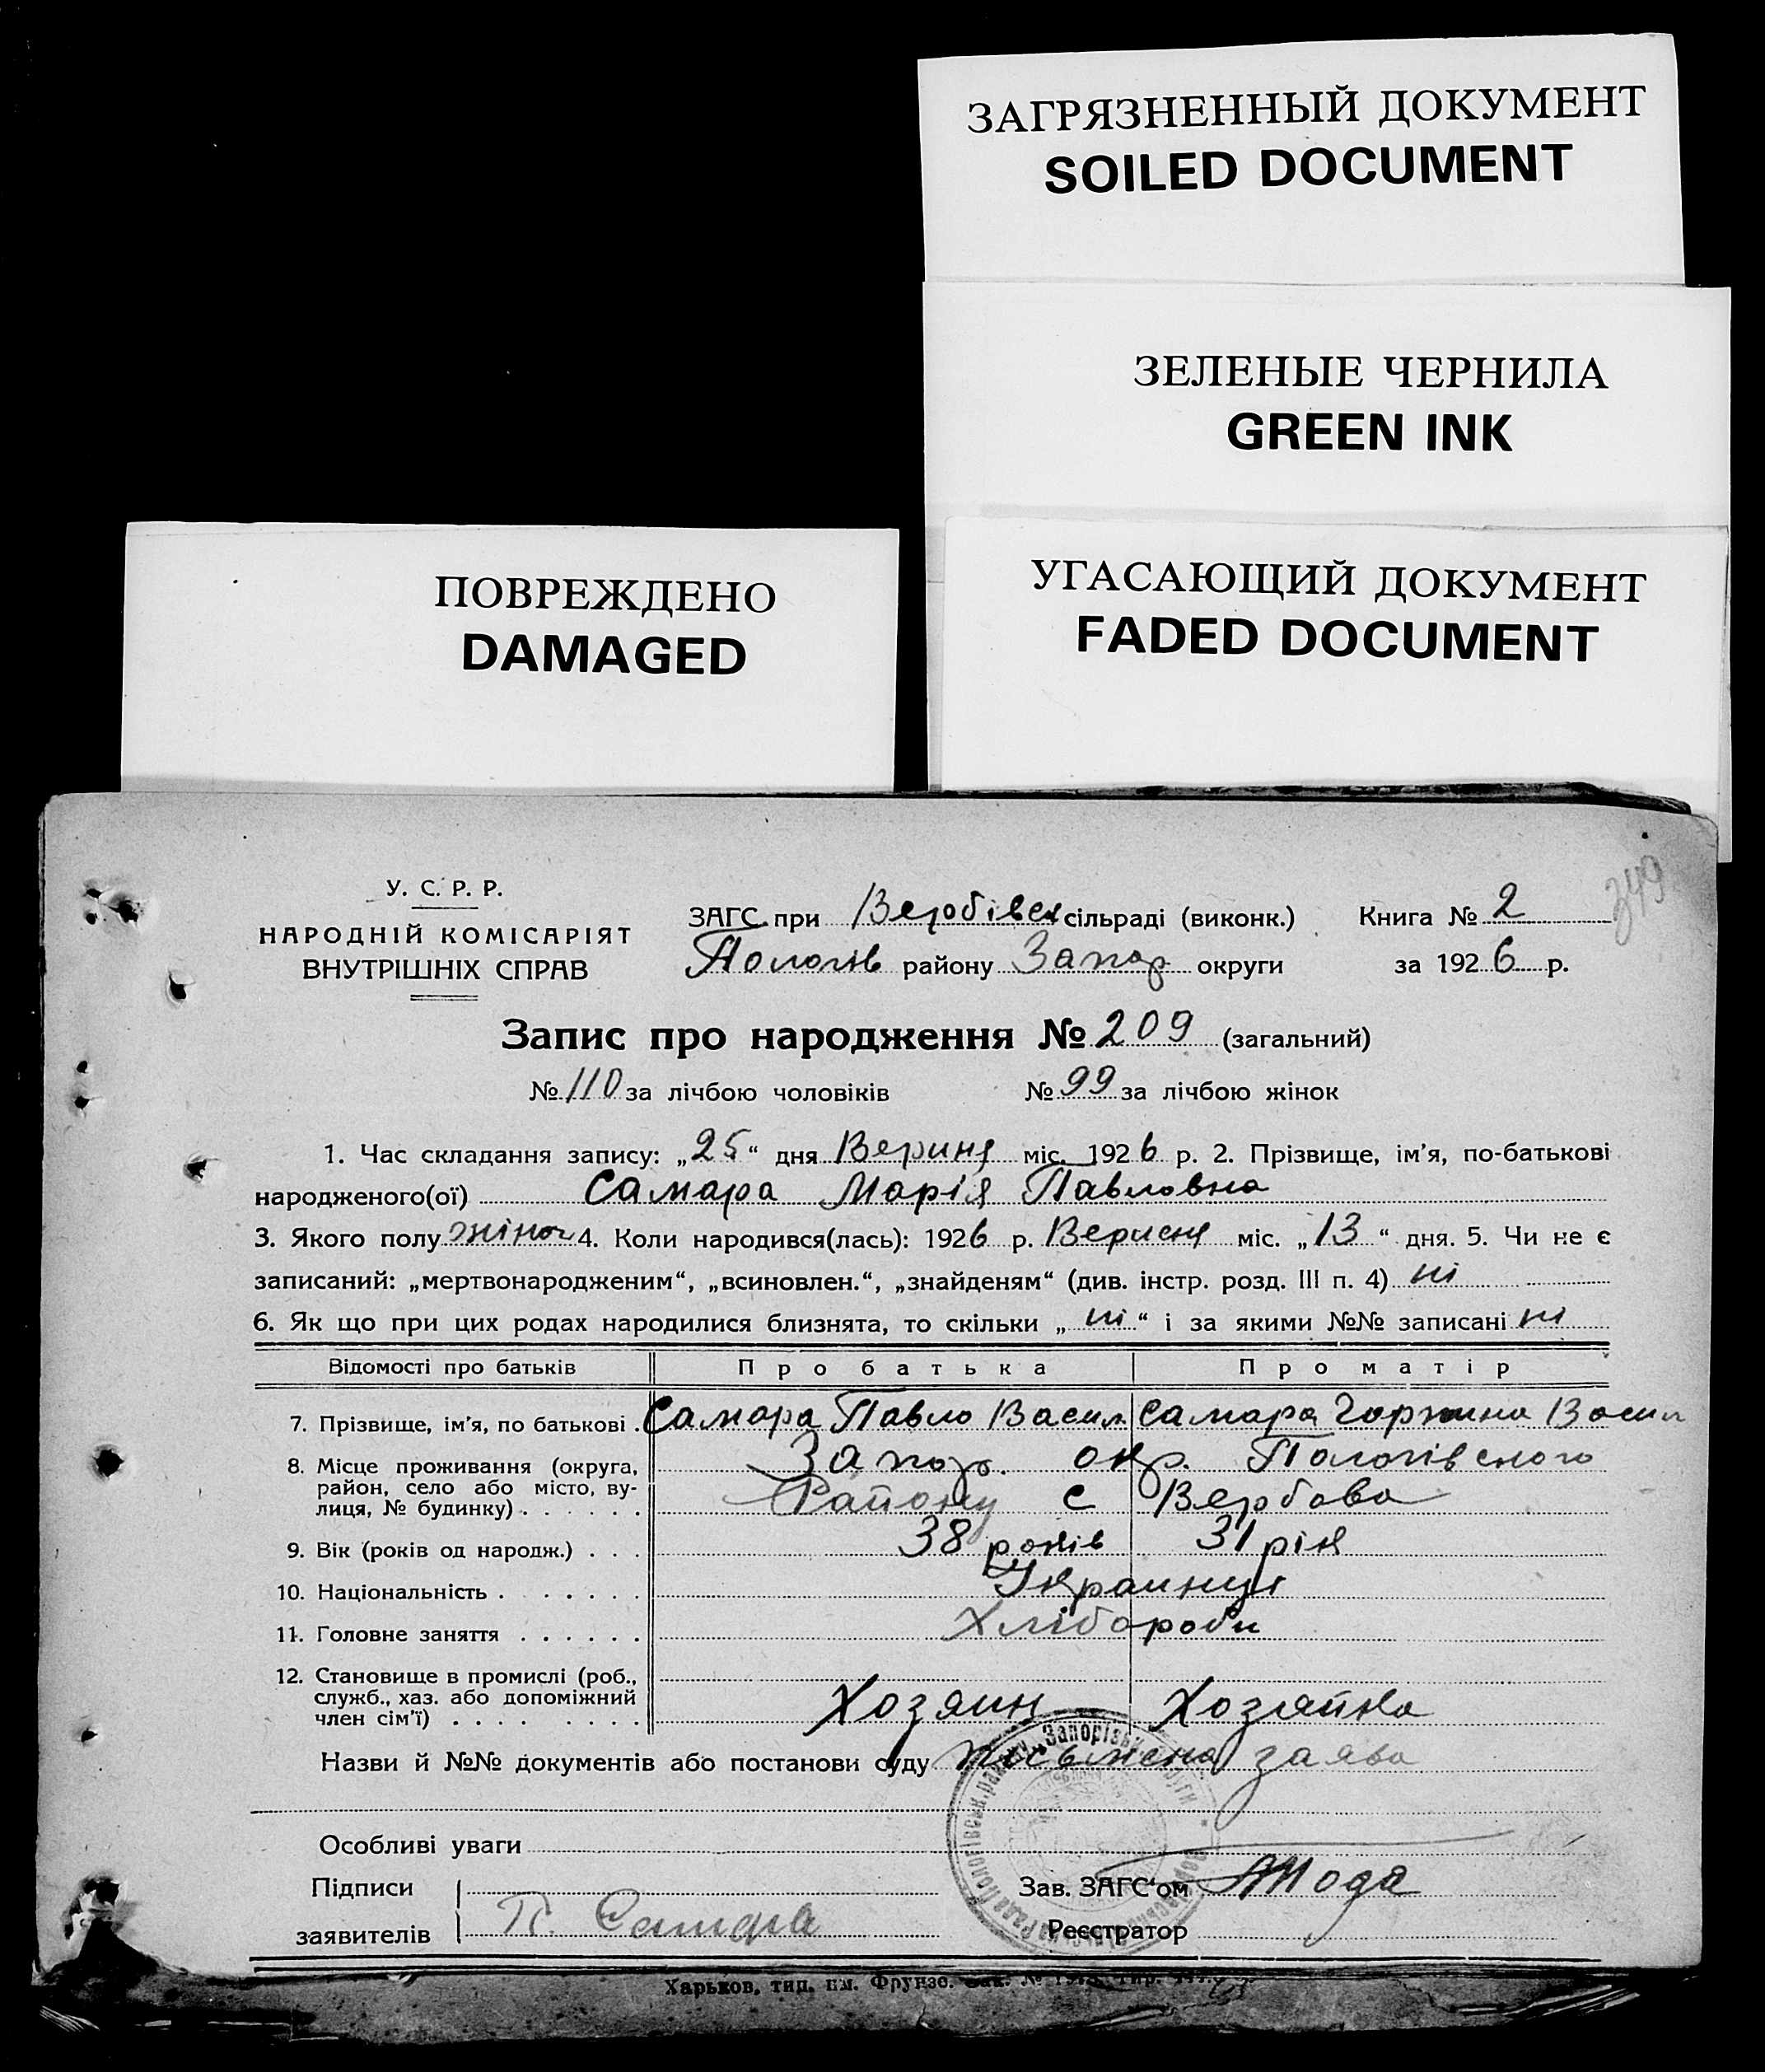 ЗАГРЯЗНЕННЫЙ ДОКУМЕНТ
SOILED DOCUMENT
ЗЕЛЕНЫЕ ЧЕРНИЛА
GREEN INK
УГАСАЮЩИЙ ДОКУМЕНТ
FADED DOCUMENT
ПОВРЕЖДЕНО
DAMAGED
349
У. С. Р. Р.
НАРОДНІЙ КОМІСАРІЯТ
ВНУТРІШНІХ СПРАВ
ЗАГС при Вербівск сільраді (виконк.) Книга № 2
Пологів району Запор округи за 1926 р.
Запис про народження № 209 (загальний)
№ 110 за лічбою чоловіків № 99 за лічбою жінок
1. Час складання запису: „25“ дня Вериня міс. 1926 р. 2. Прізвище, ім'я, по-батькові
народженого(ої) Самара Марія Павловна
3. Якого полу жіноч 4. Коли народився(лась): 1926 р. Верисня міс. „13“ дня. 5. Чи не є
записаний: „мертвонародженим“, „всиновлен.“, „знайденям“ (див. інстр. розд. III п. 4) ні
6. Як що при цих родах народилися близнята, то скільки „ні“ і за якими №№ записані ні
Відомості про батьків Про батька Про матір
7. Прізвище, ім'я, по батькові . Самара Павло Васил. Самара Васил
8. Місце проживання (округа, Запор. окр. Пологівского
район, село або місто, ву- Району с Вербова
лиця, № будинку) . . . . . .
9. Вік (років од народж.) . . . 38 років 31 рік
10. Національність . . . . . . Украинці
11. Головне заняття . . . . . . Хлібороби
12. Становище в промислі (роб.,
служб., хаз. або допоміжний Хозяин Хозяйка
член сім'ї) . . . . . . . .
Назви й №№ документів або постанови суду письмена заява
Особливі уваги
Підписи Зав. ЗАГС'ом
заявителів П. Самара Реєстратор
Харьков, тип. им. Фрунзе.